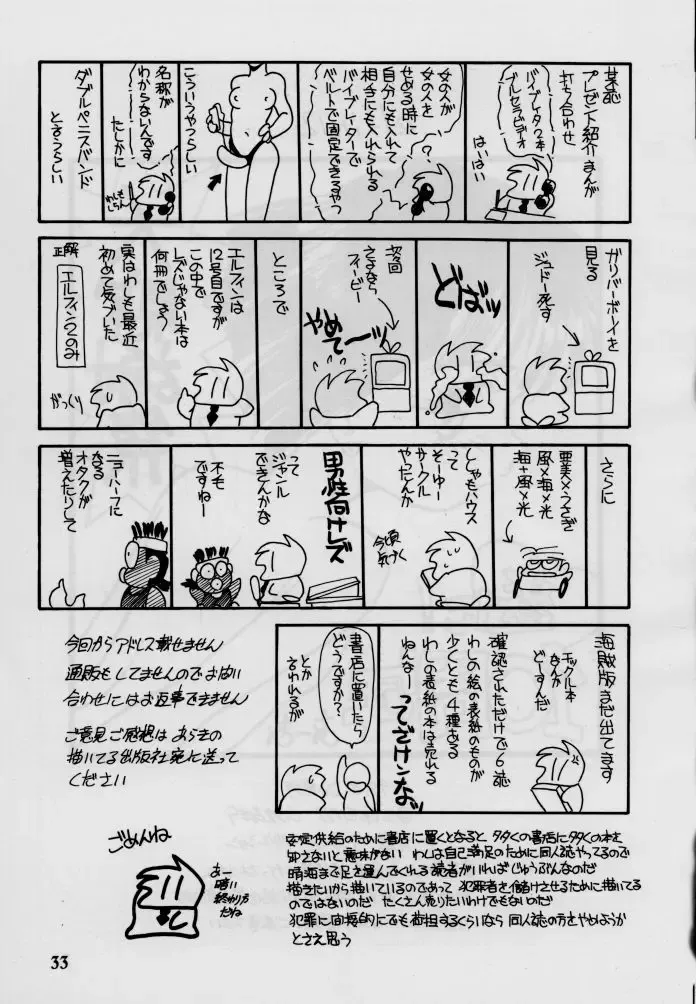 某誌
プレゼント紹介まんが
打ち合わせ
バイブレータ2本
ブルセラビデオ
はーいはーい
女の人が
女の人を
せめる時に
自分にも入れて
相手にも入れられる
バイブレーターで
ベルトで固定できるやつ
こういうやつらしい
名称が
わからないんです
たしかに
わしもしらん
ダブルペニスバンド
と言うらしい
ガリバーボーイを
見る
ジュドー死す
どばッ
次回
さよなら
フィービー
やめて〜ッ
ところで
エルフィンは
12号目ですが
この中で
レズじゃない本は
何冊でしょう
実はわしも最近
初めて気づいた
正解
エルフィン2のみ
がっくり
さらに
亜美×うさぎ
風×海×光
海+風×光
ししゃもハウス
って
そーゆー
サークル
やったんか
今頃
気づく
男性向けレズ
って
ジャンル
できんかな
不毛
ですねー
ニューハーフに
なる
オタクが
増えたりして
海賊版まだ出てます
エックル本
なんか
どーすんだ
確認されただけで6誌
わしの絵の表紙のものが
少くとも4種ある
わしの表紙の本は売れる
ねんなー
ってざけンなッ
書店に置いたら
どうですか?
とか
言われるが
今回からアドレス載せません
通販もしてませんのでお問い
合わせにはお返事できません
ご意見ご感想は あらきの
描いてる出版社宛に送って
ください
安定供給のために書店に置くとなると 多くの書店に多くの本を
卸さないと意味がない わしは自己満足のために同人誌やってるので
晴海まで足を運んでくれる読者がいればじゅうぶんなのだ
描きたいから描いているのであって 犯罪者を儲けさせるために描いてる
のではないのだ たくさん売りたいわけでもないのだ
犯罪に間接的にでも荷担するくらいなら 同人誌の方をやめようか
とさえ思う
ごめんね
あー
暗い
終わり方
だね
33